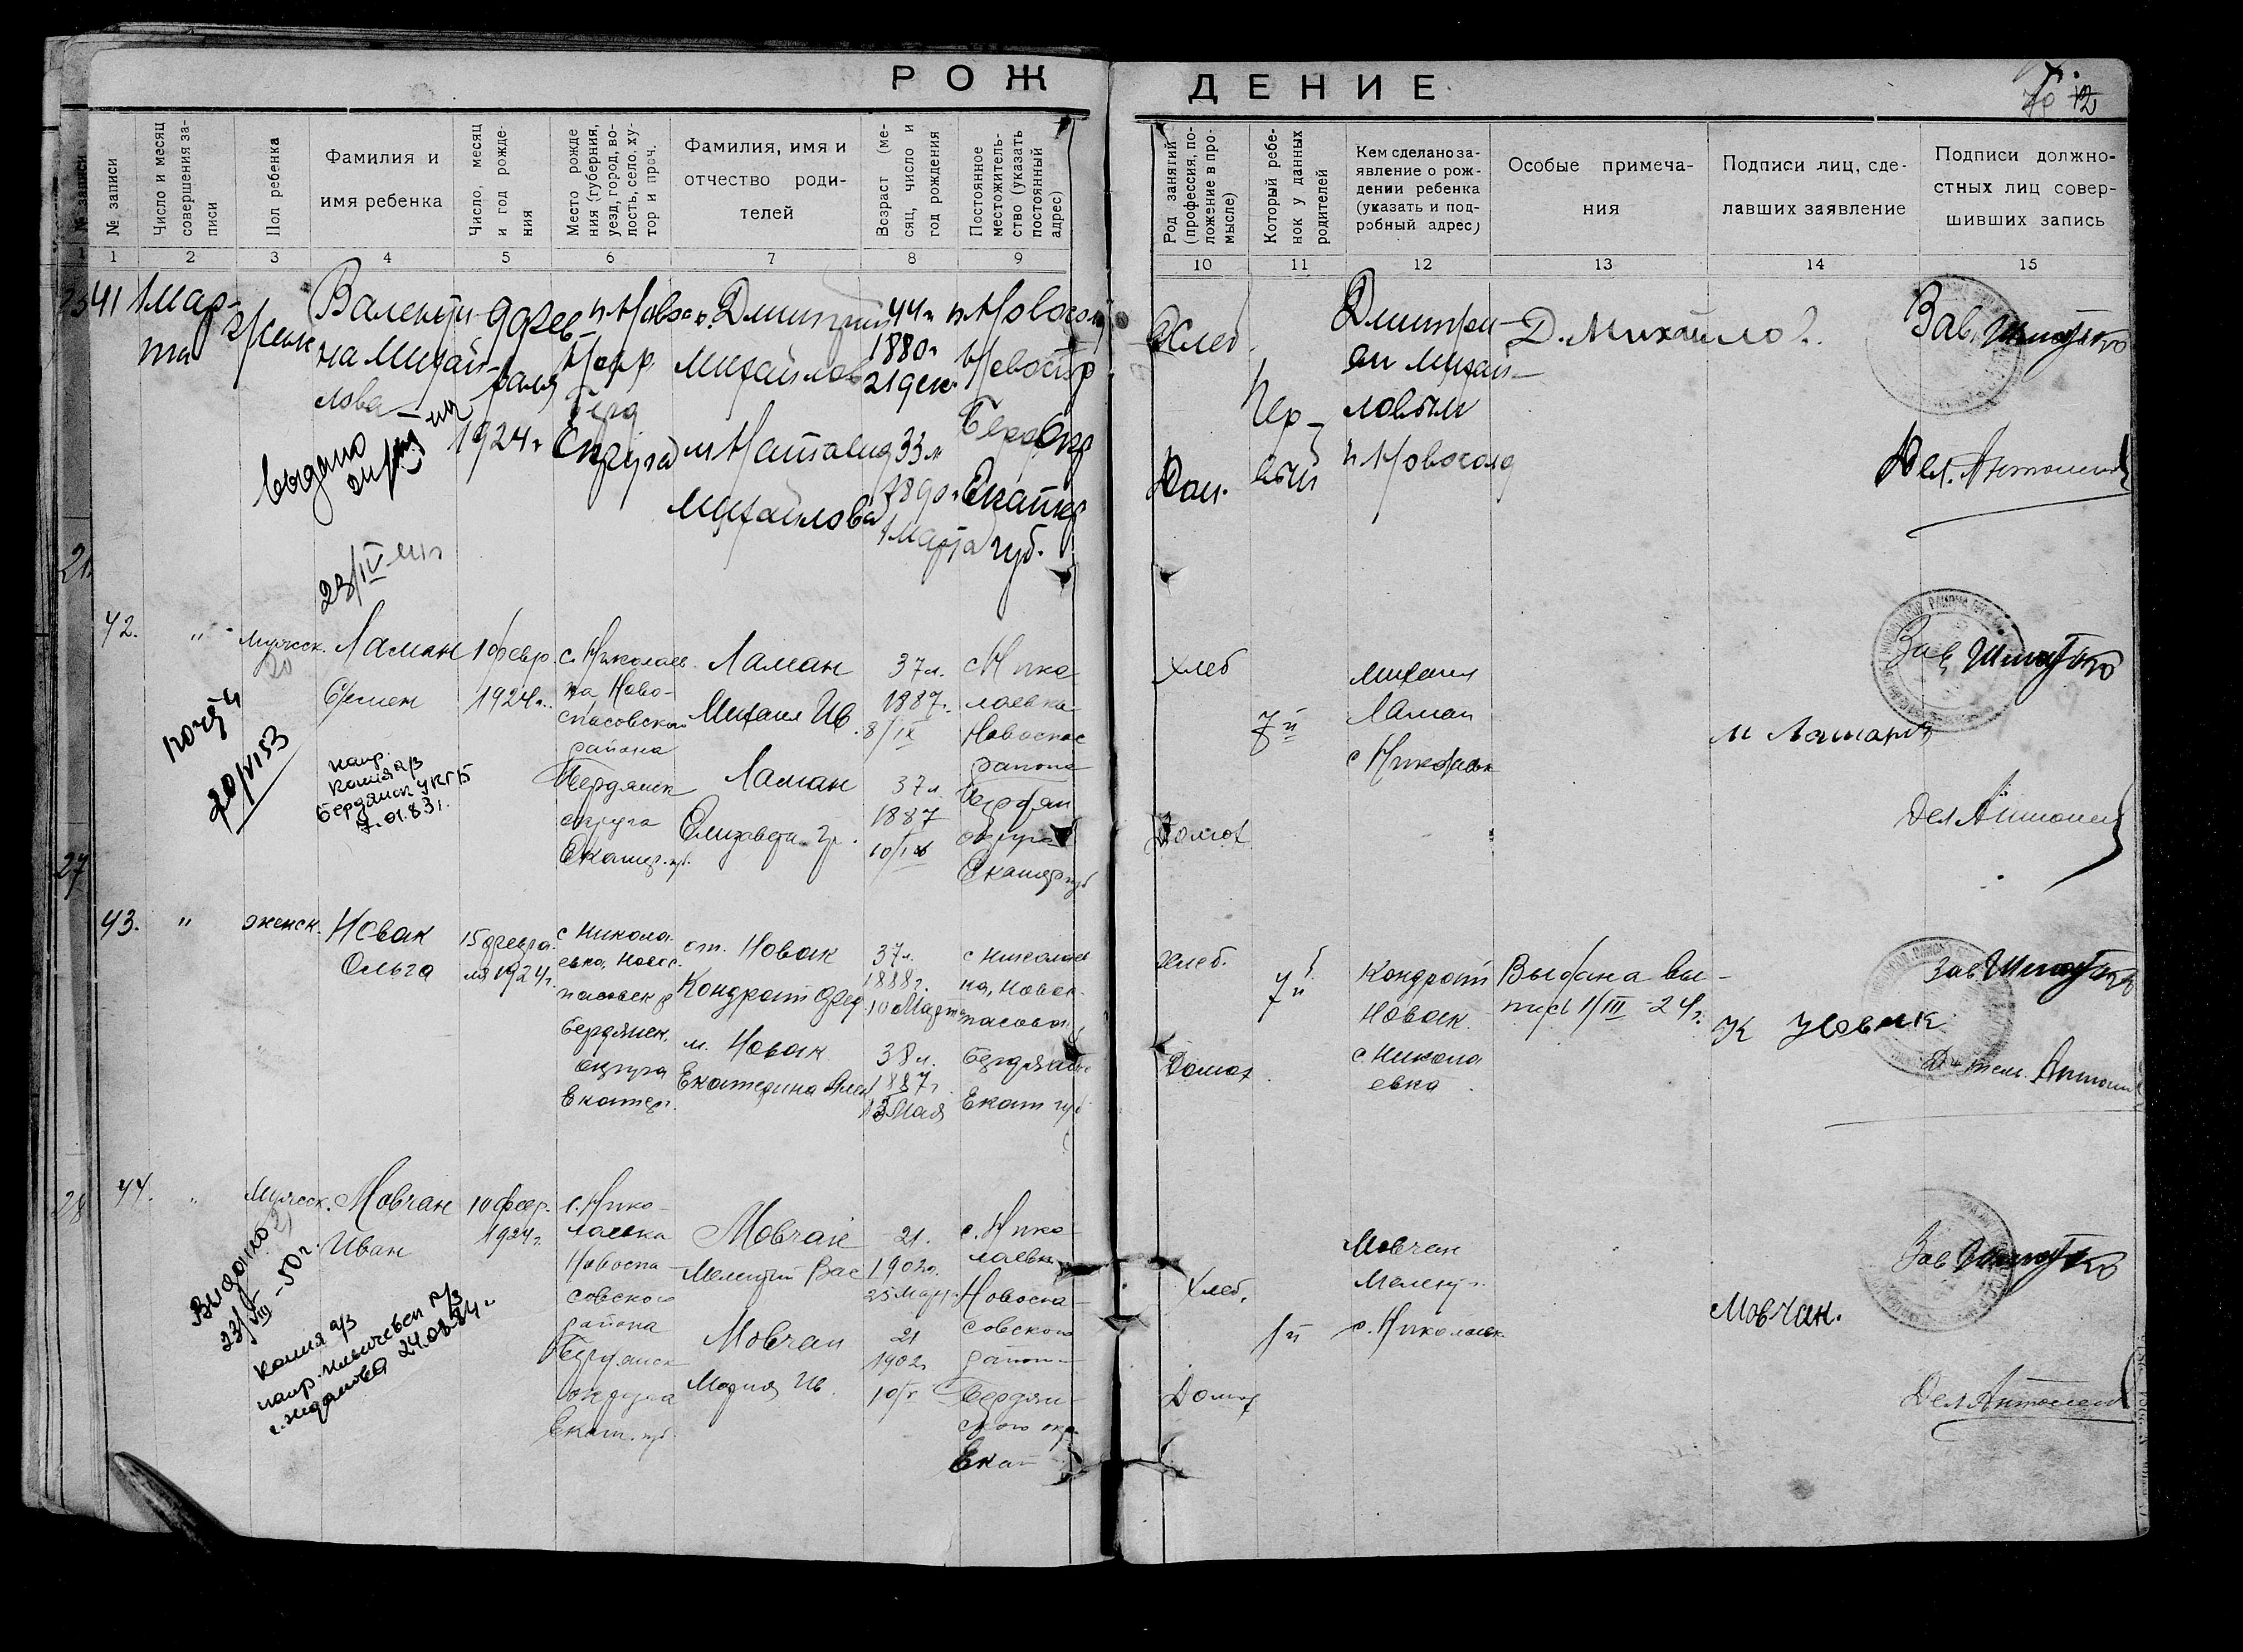 РОЖДЕНИЕ
12
№ записи
№ записи
Число и месяц совершения записи
Пол ребенка
Фамилия и
имя ребенка
Число, месяц
и год рожде-
ния
Место рожде
ния (губерния,
уезд, город, во-
лость, село, ху-
тор и проч.
Фамилия, имя и
отчество роди-
телей
Возраст (ме-
сяц, число и
год рождения
Постоянное
местожитель-
ство (указать
постоянный
адрес)
Род занятий
(профессия, по-
ложение в про-
мысле)
Который ребе-
нок у данных
родителей
Кем сделано за-
явление о рож-
дении ребенка
(указать и под-
робный адрес)
Особые примеча-
ния
Подписи лиц, сде-
лавших заявление
Подписи должно-
стных лиц совер-
шивших запись
1 1 2 3 4 5 6 7 8 9 10 11 12 13 14 15
41
1 мар-
та
женск
Валенти-
на Михай-
лова
9 фев-
раля
1924 г
Округа
Дмитрий
Михайлов
м Наталия
Михайлова
44 л
1880 г
21 дек.
33 л
1890 г
1 марта
п Новоспас
Берд Окр
Екатер
губ.
Хлеб
Дом.
Пер-
вый
Дмитри-
ем Михай-
ловым
Д. Михайло
Зав.
Дел. Антонен
выдано
23/IV
42.
"
мужск.
20
Ламан
Семен
1 февр.
1924 г.
с. Николаев
ка Ново-
спасовского
района
Бердянск
округа
Екатер. губ.
Ламан
Михаил Ив.
Ламан
Елизавета Гр.
37 л.
1887 г.
8/IX
37 л.
1887
10/IX
с Нико
лаевка
Новоспас
района
Бердян
округа
Екатер губ
хлеб
Домох
7й
Михаил
Ламан
с Николаевк
м Ламан
Зав
Дел Антонен
20/VI 53
напр.
копия а/з
Бердянск УКГБ
7.01.83 г.
43.
"
женск.
Новак
Ольга
15 февра-
ля 1924 г.
с Никола-
евка, Новос-
пасовск р
Бердянск.
округа
Екатер.
от. Новак
Кондрат Фед
м. Новак
Екатерина
37 л.
1888 г.
10 Марта
38 л.
1887 г.
13 Мая
с Николаев
ка, Новос-
пасовск
Бердянск
Екат губ
Хлеб.
Домох.
7й
Кондрат
Новак
с. Никола
евка
Выдана вы-
пись 1/III-24 г.
К Новак
Зав
Антонен
44.
"
Мужск.
Мовчан
Иван
10 февр.
1924 г.
с. Нико-
лаевка
Новоспа-
совского
района
Бердянск
округа
Екат. губ.
Мовчан
Мелетий Вас
Мовчан
Мария Ив.
21.
1902 г.
25 Март
21
1902 г
с. Нико-
лаевка
Новоспа-
совского
район
Бердян-
ского окр
Екат
Хлеб.
Домох
1й
Мовчан
Мелети
с. Николаевк
Мовчан.
Зав
Дел Антонен
Видано
23/VIII-50 г.
копия а/з
напр. Ильичевск р/з
г. Жданова 24.08.84 г